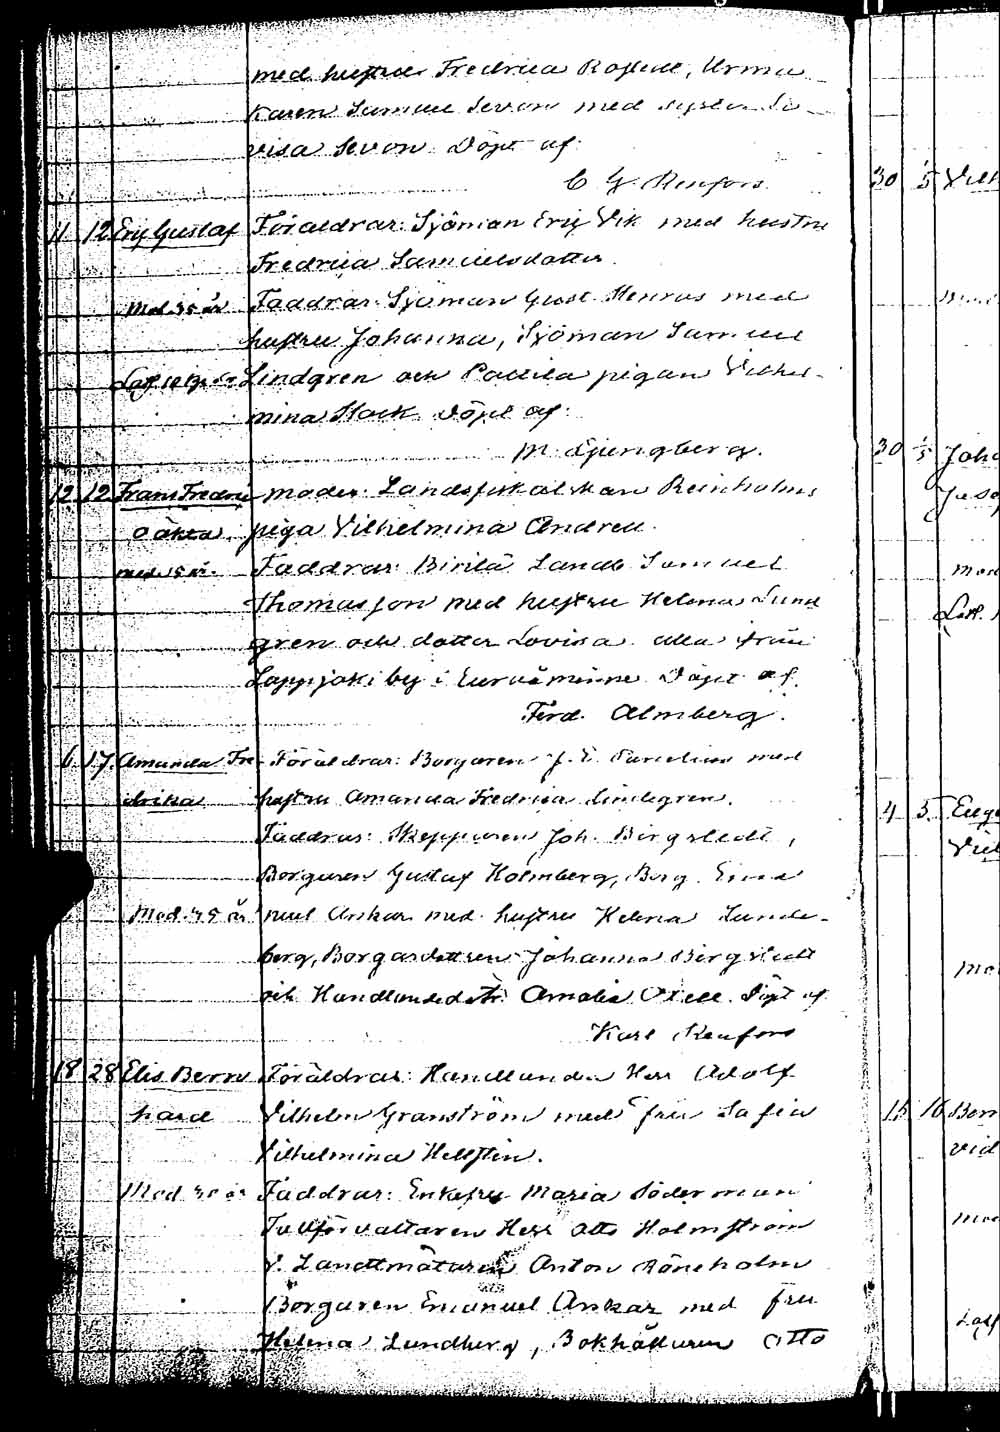 med hustru Fredrica Rostedt, Urma
karen Samuel Sevon med syster Lo
visa Sevon. Döpt af
C G Renfors
11 12 Eric Gustaf Föräldrar: Sjöman Eric Vik med hustru
Fredrica Samuelsdotter
Mod. 35 år Faddrar: Sjöman Gust. Henrus med
hustru Johanna, Sjöman Samuel
Lindgren och pigan Vilhel-
mina Stock. Döpt af
M. Ljungberg.
12 12 Frans Fredric moder: Landsfiskalskan Reinholms
oäkta piga Vilhelmina Andrea.
mod. år. Faddrar: Birilä Landb. Samuel
Thomasson med hustru Helena Lund
gren och dotter Lovisa alla från
Lappjoki by i Euraåminne. Döpt af
Ferd. Almberg.
6 17. Amanda Fre- Föräldrar: Borgaren J. E. med
drika hustru Amanda Fredrica Lindegren.
Faddrar: Skepparen Joh. Bergstedt,
Borgaren Gustaf Holmberg, Borg. Ema
Mod. 35 år nuel Ankar med hustru Helena Lunde-
berg, Borgaredottren Johanna Bergstedt
och Handlandedtr. Amalia Oxell. Döpt af
Karl Renfors
18 28 Elis Bern Föräldrar: Handlanden Herr Adolf
hard Vilhelm Granström med fru Sofia
Vilhelmina Hellsten.
Mod 30 år Faddrar: Enkefru Maria Söderman
Tullförvaltaren Herr Otto Holmström
V. Landtmätaren Anton Röneholm
Borgaren Emanuel Ankar med fru
Helena Lundberg, Bokhållaren Otto
30 1/5 Vilh
30 1/5 Joha
mod
4 5. Euge
Mo
15 16 Bern
vid